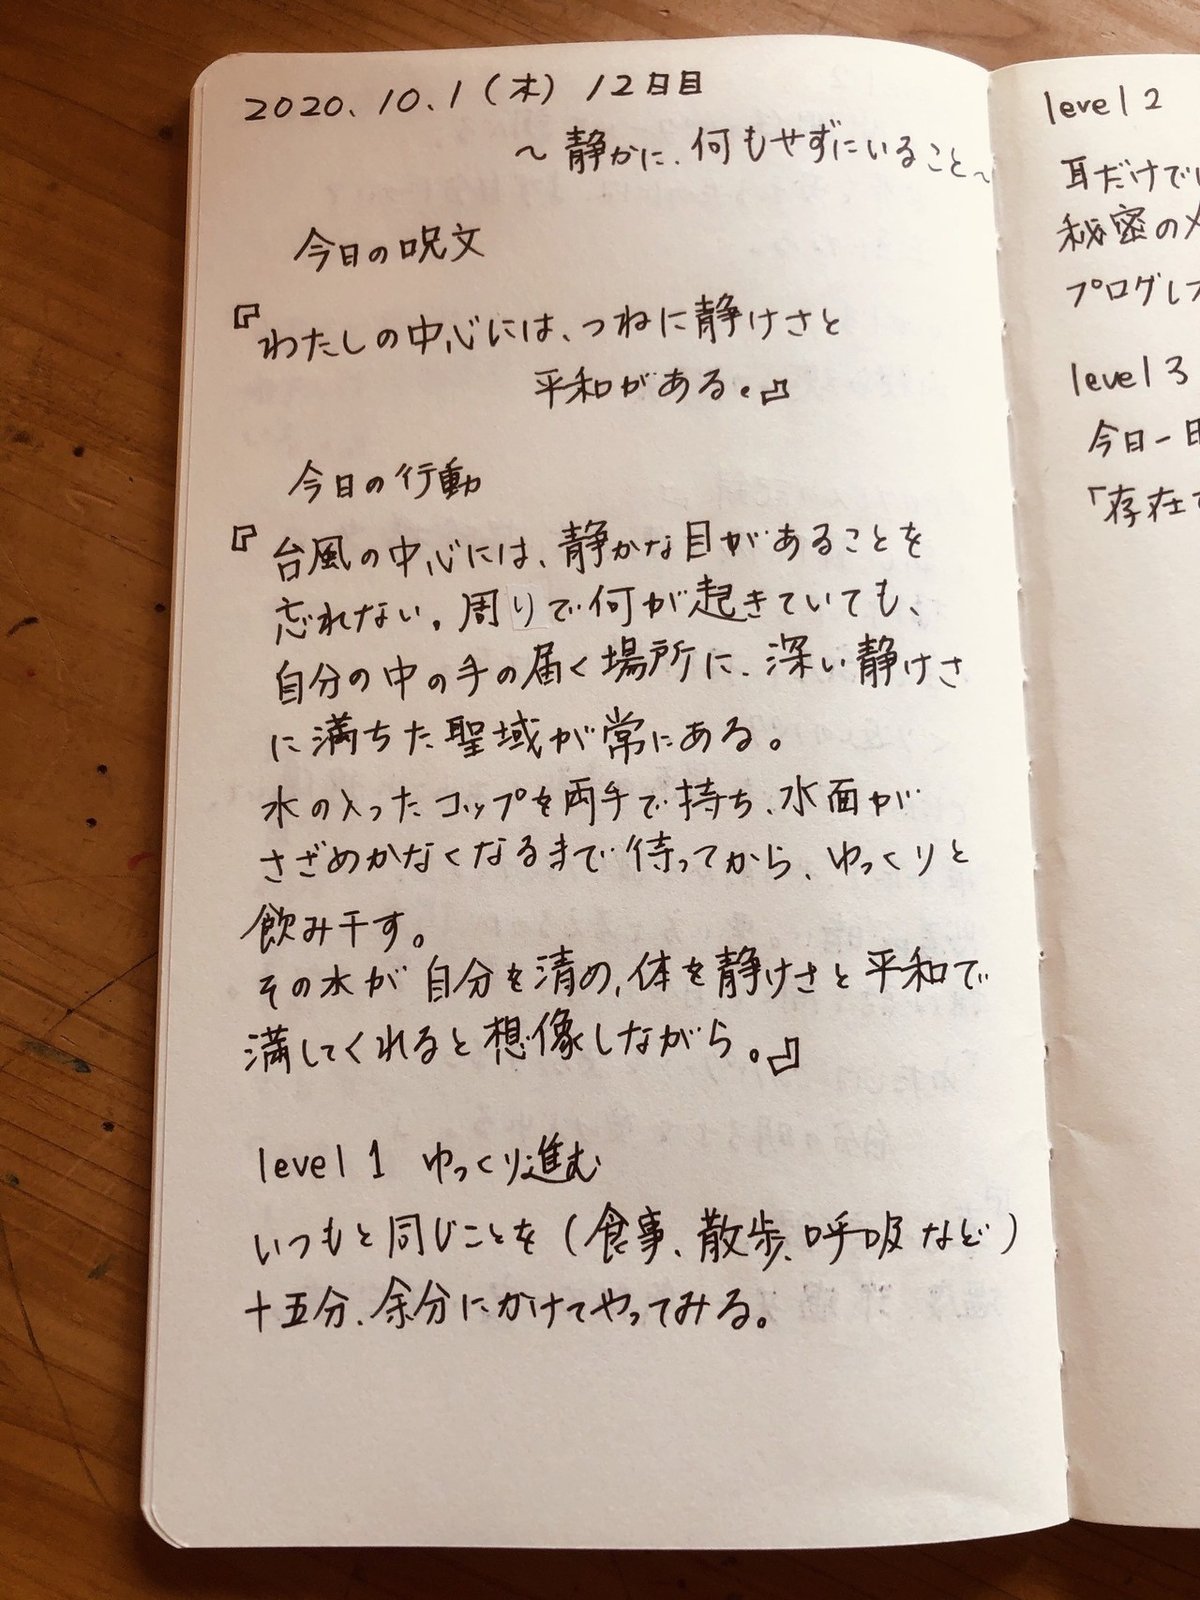 2020.10.1(木) 12日目
～静かに、何もせずにいること～
今日の呪文
『わたしの中心には、つねに静けさと
平和がある。』
今日の行動
『台風の中心には、静かな目があることを
忘れない。周りで何が起きていても、
自分の中の手の届く場所に、深い静けさ
に満ちた聖域が常にある。
水の入ったコップを両手で持ち、水面が
さざめかなくなるまで待ってから、ゆっくりと
飲み干す。
その水が自分を清め、体を静けさと平和で
満してくれると想像しながら。』
level 1 ゆっくり進む
いつもと同じことを(食事、散歩、呼吸など)
十五分、余分にかけてやってみる。
level 2
耳だけで
秘密の
プログレ
level 3
今日一日
「存在